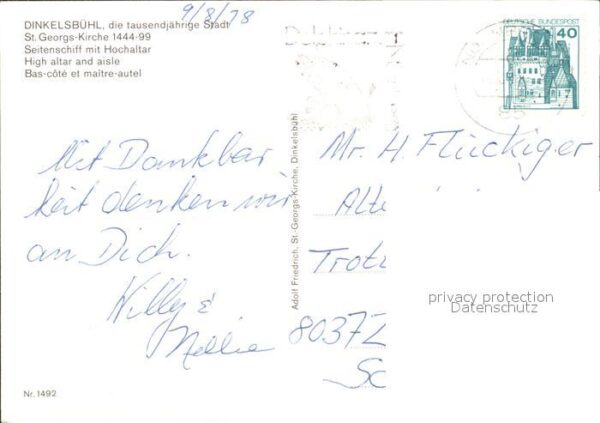 9/8/78
DINKELSBÜHL, die tausendjährige Stadt
St. Georgs-Kirche 1444-99
Seitenschiff mit Hochaltar
High altar and aisle
Bas-côté et maître-autel
DEUTSCHE BUNDESPOST
40
Mit Dankbar
keit denken wir
an Dich.
Willy &
Nellie
Adolf Friedrich, St.-Georgs-Kirche, Dinkelsbühl
Mr. H. Flückiger
Alte
Trotz
8037 Z
Sc
privacy protection
Datenschutz
Nr. 1492